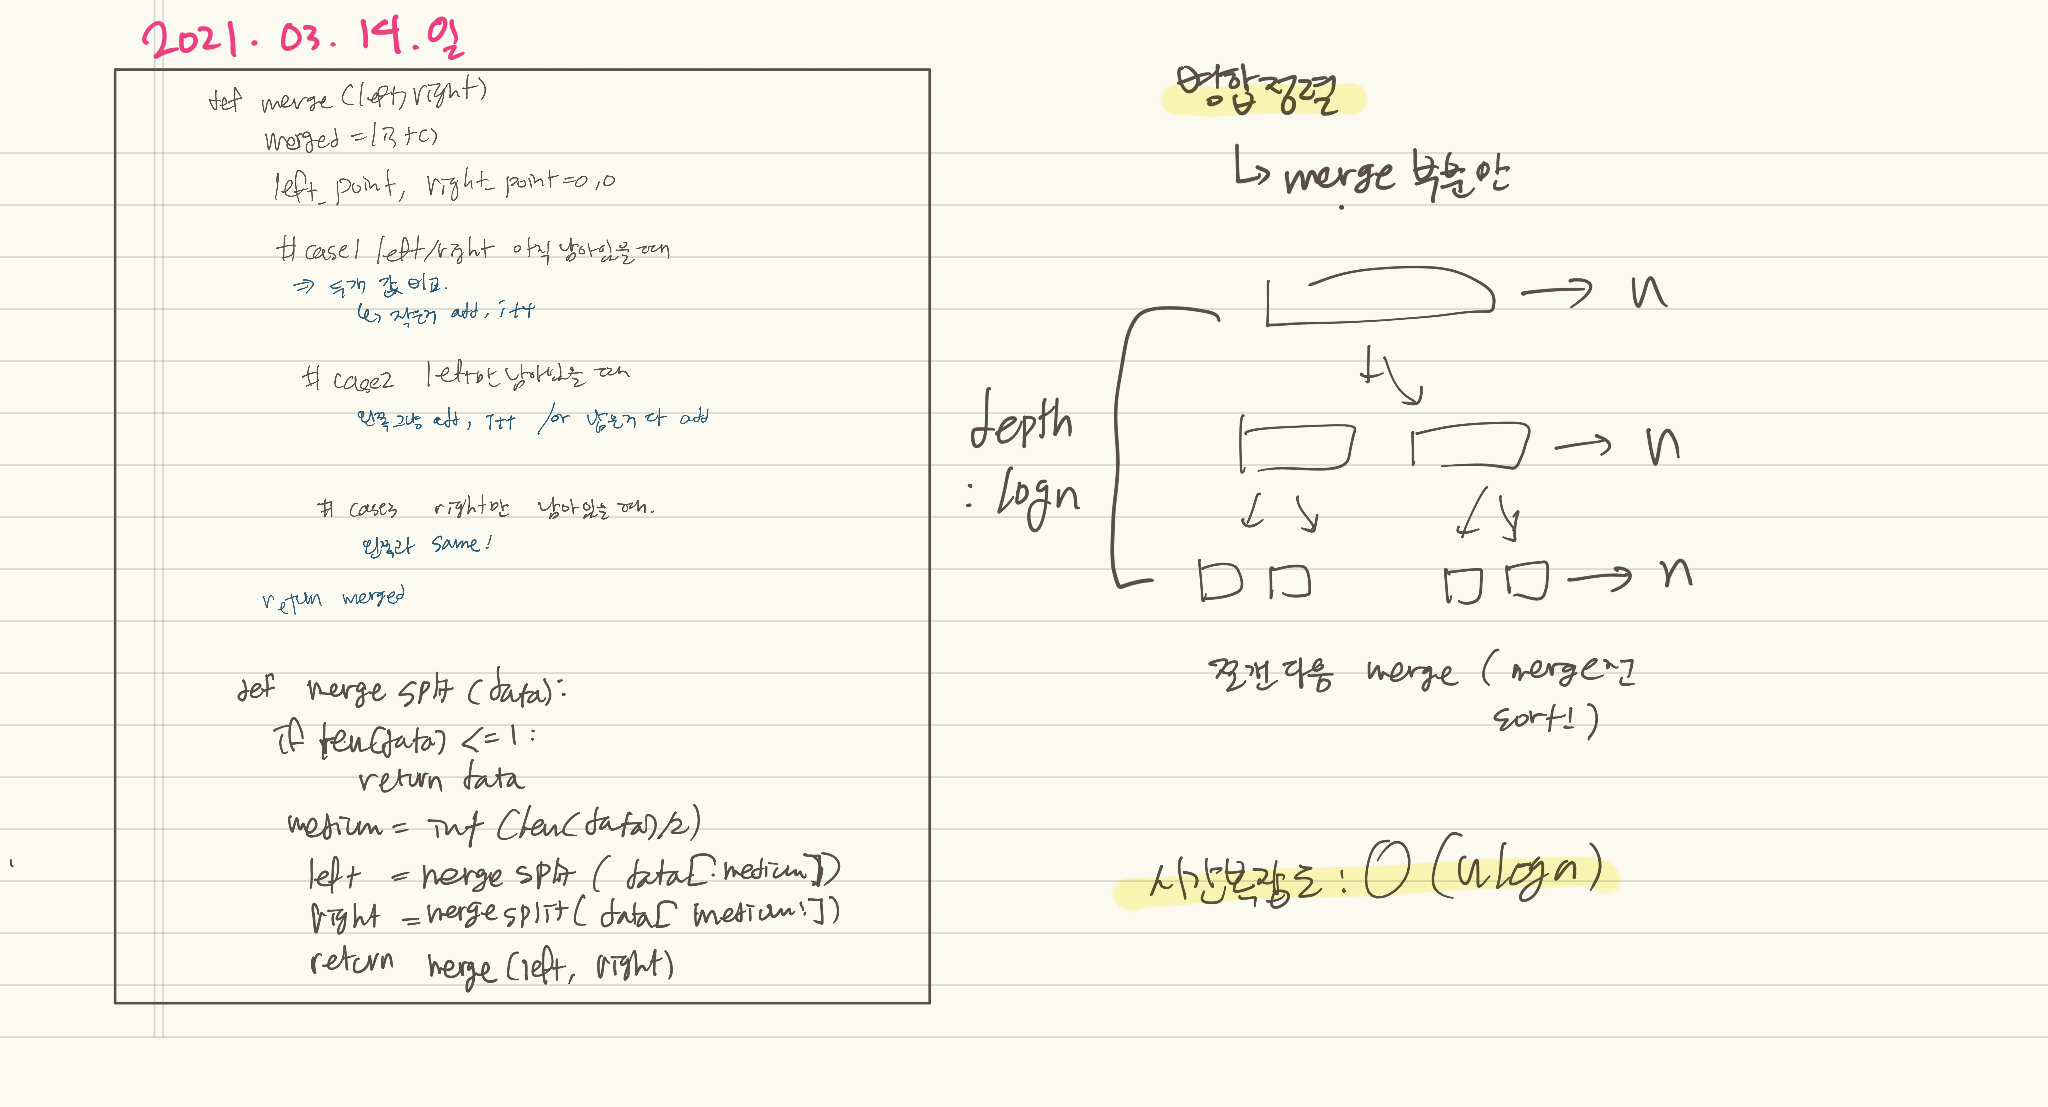 2021. 03. 14. 일
def merge (left, right)
merged = list()
left_point, right_point=0,0
#case1 left/right 아직 남아있을때
⇒ 두개 값 비교.
↳ 작은거 add, i++
# case2 left만 남아있을 때
왼쪽 그냥 add, i++ /or 남은거 다 add
# case3 right만 남아있을 때.
왼쪽과 same!
return merged
def merge split (data):
if len(data) <=1:
return data
medium = int (len(data)/2)
left = merge split ( data[:medium])
right = merge split( data[ medium:])
return merge (left, right)
병합정렬
↳ merge
→ n
→ n
→ n
depth
: logn
다음 merge ( merge
sort! )
시간복잡도 : O (nlogn)